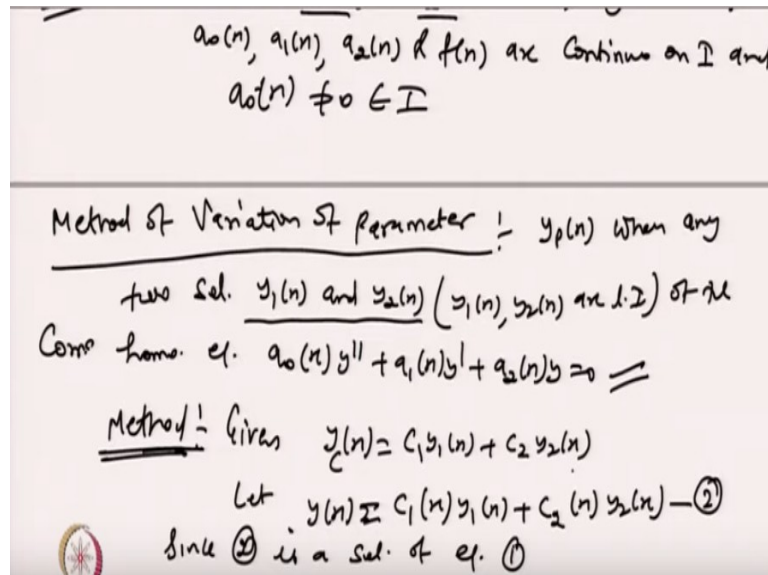 a₀(n), a₁(n), a₂(n) & f(n) are Continuo on I and
a₀(n) ≠ 0 ∈ I
Method of Variation of Parameter :- yₚ(n) when any
two sol. y₁(n) and y₂(n) (y₁(n), y₂(n) are L.I) of the
Corro homo. eq. a₀(n) y'' + a₁(n)y' + a₂(n)y = 0
Method:- Given y_c(n) = C₁y₁(n) + C₂ y₂(n)
Let y(n) = C₁(n) y₁(n) + C₂(n) y₂(n) — ②
Since ② is a sol. of eq. ①